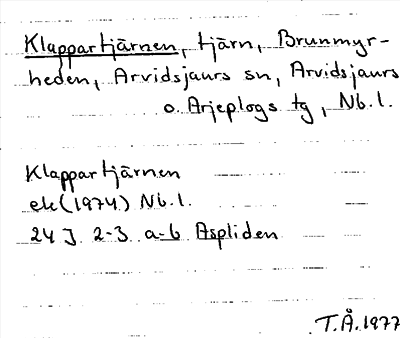 Klappartjärnen, tjärn, Brunmyr-
heden, Arvidsjaurs sn, Arvidsjaurs
o. Arjeplogs tg, Nb.l.
Klappartjärnen
ek (1974) Nb.l.
24 J 2-3 a-b Aspliden
T.Å. 1977